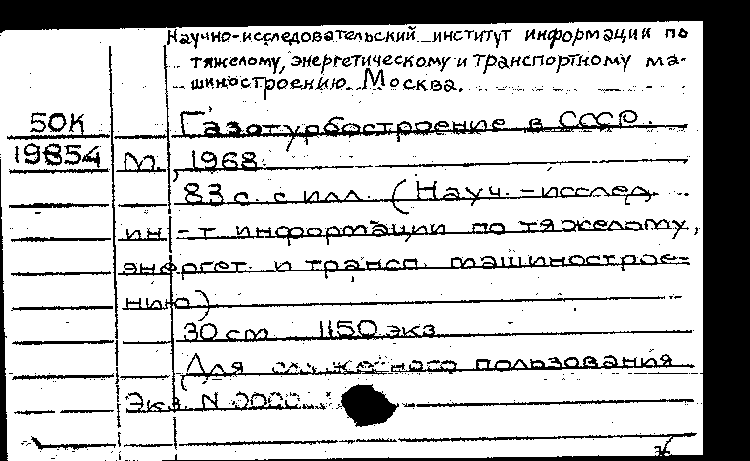 Научно-исследовательский институт информации по
тяжелому, энергетическому и транспортному ма-
шиностроению. Москва.
50К
Газотурбостроение в СССР.
19854
М., 1968.
83 с. с илл. (Науч.-исслед.
ин-т информации по тяжелому,
энергет. и трансп. машинострое-
нию)
30 см 1150 экз
Для служебного пользования
Экз. N 0000